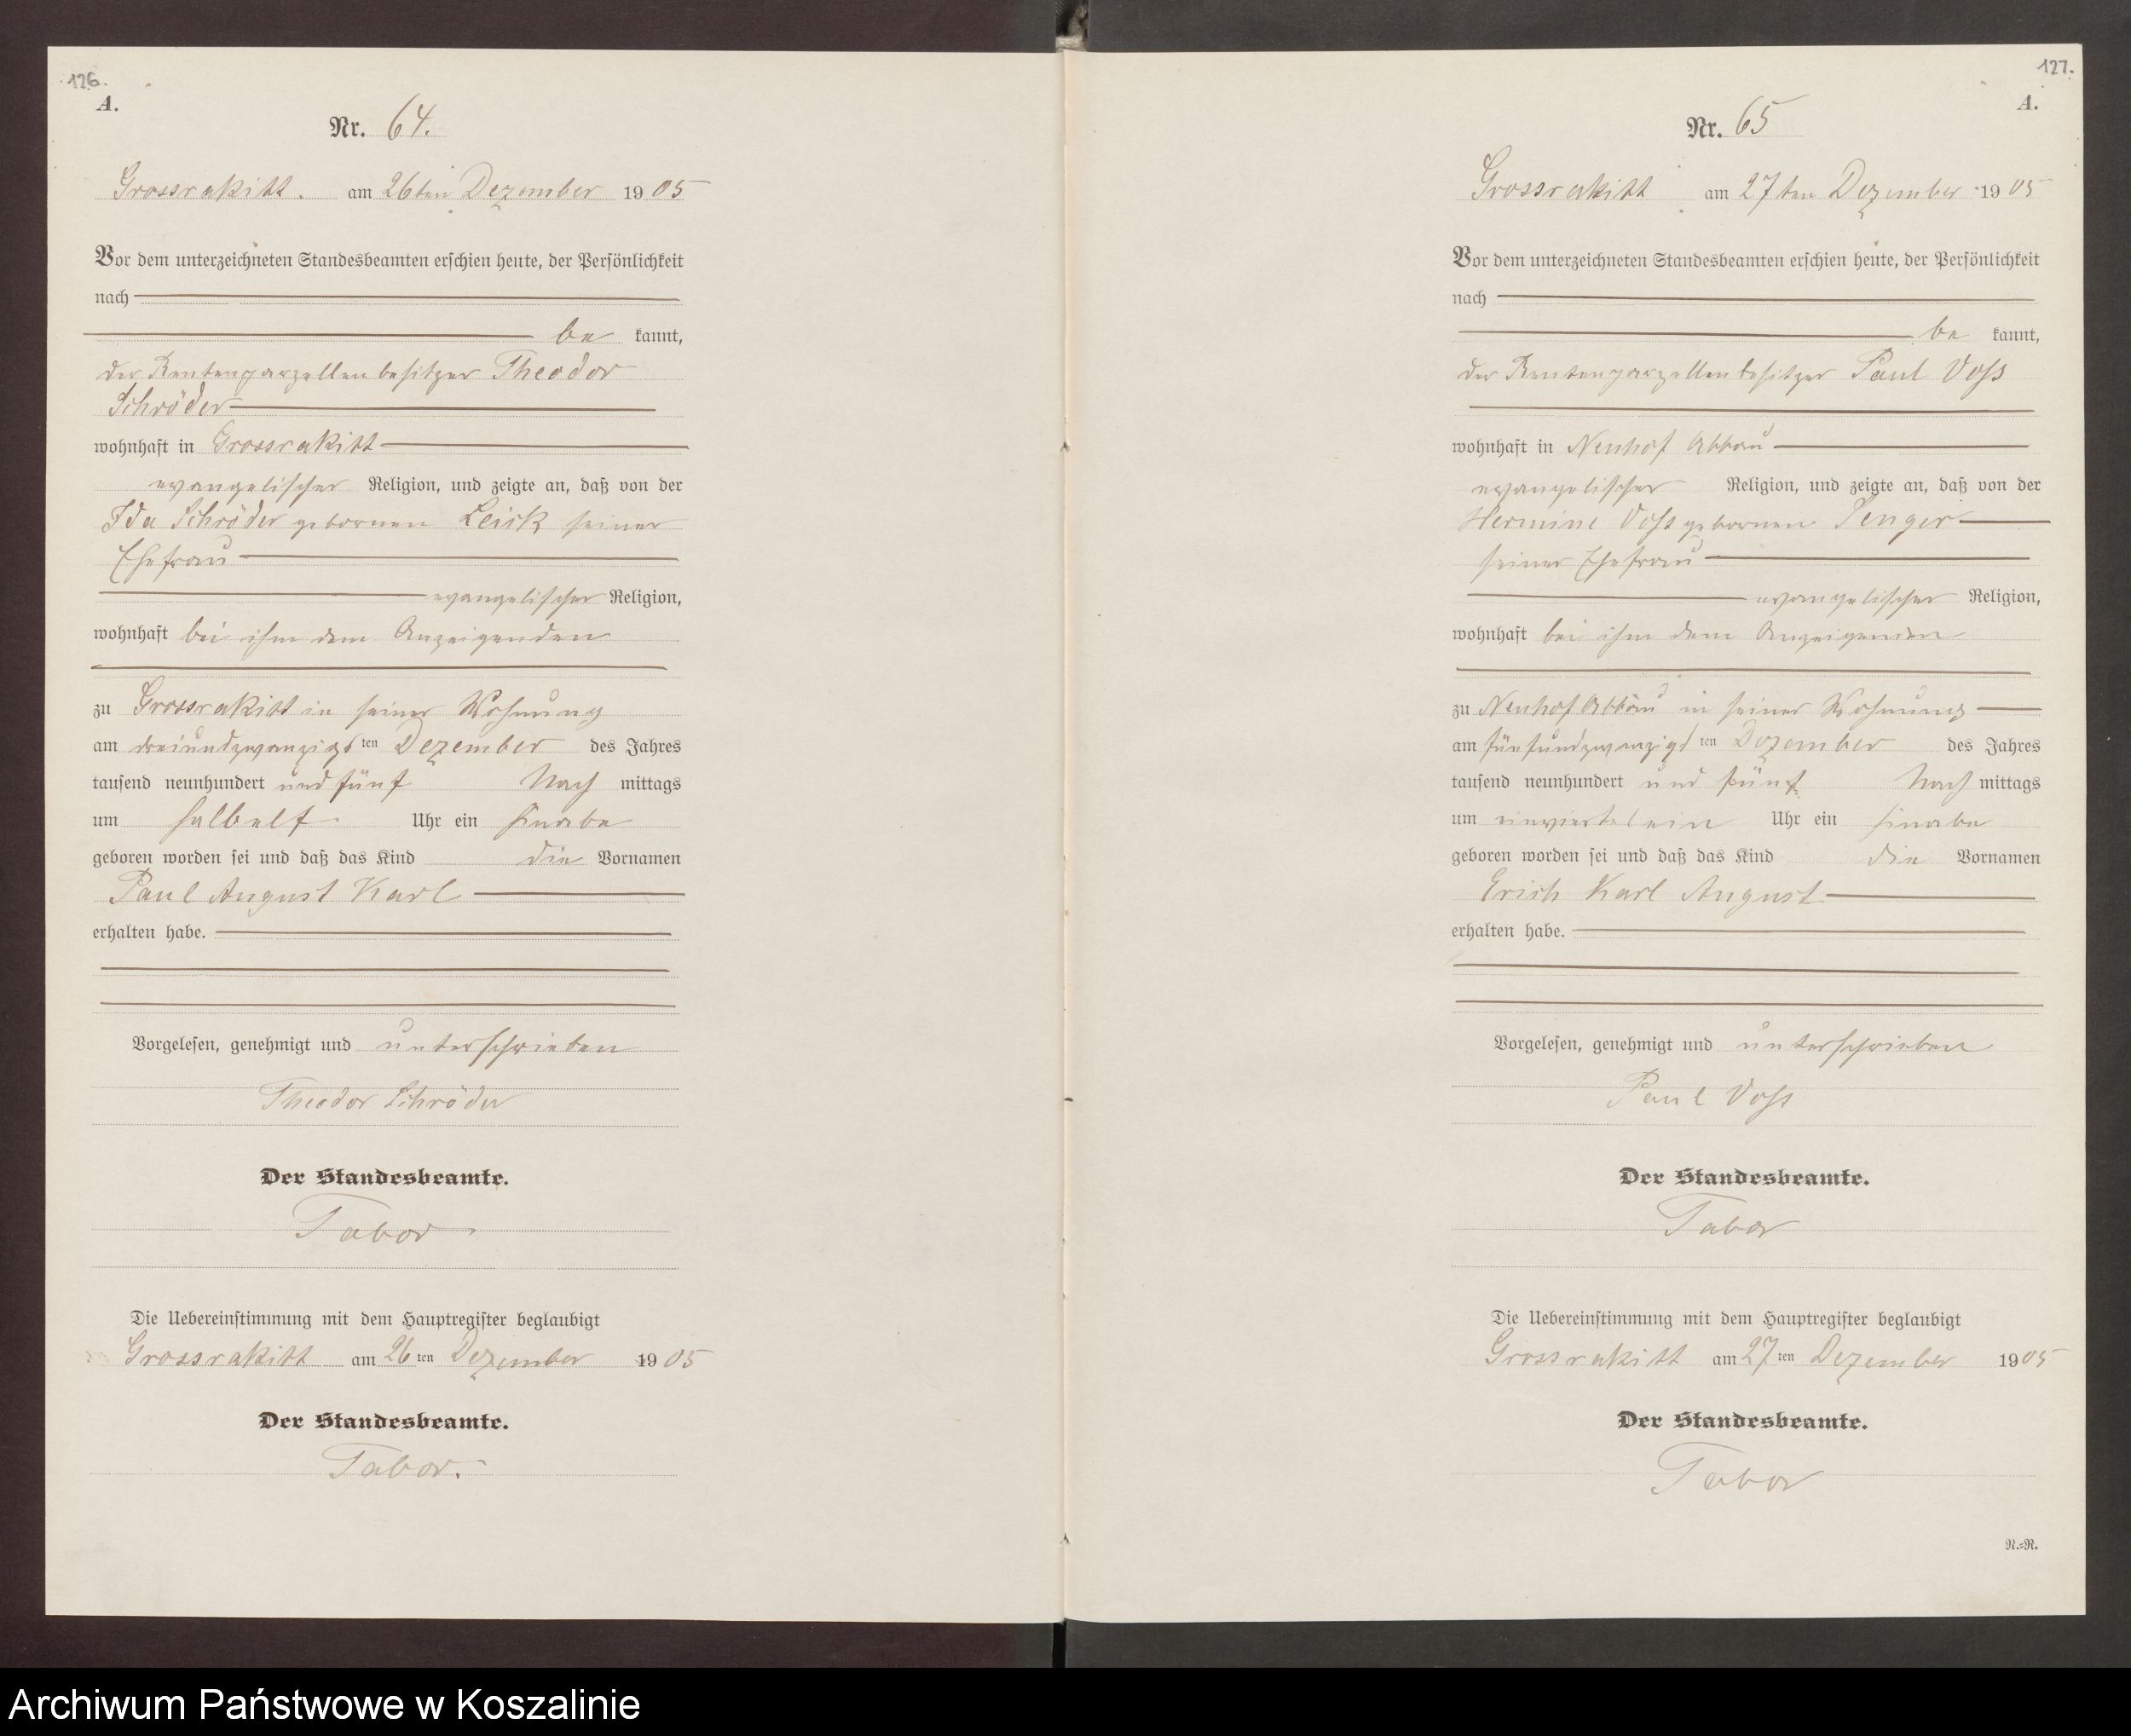 126.
A.
Nr. 64.
Grossrakitt. am 26ten Dezember 1905
Vor dem unterzeichneten Standesbeamten erschien heute, der Persönlichkeit
nach
be kannt,
der Rentenparzellenbesitzer Theodor
Schröder
wohnhaft in Grossrakitt
evangelischer Religion, und zeigte an, daß von der
Ida Schröder gebornen Leick seiner
Ehefrau
evangelischer Religion,
wohnhaft bei ihm dem Anzeigenden
zu Grossrakitt in seiner Wohnung
am dreiundzwanzigsten Dezember des Jahres
tausend neunhundert und fünf Nach mittags
um halbelf Uhr ein Knabe
geboren worden sei und daß das Kind die Vornamen
Paul August Karl
erhalten habe.
Vorgelesen, genehmigt und unterschrieben
Theodor Schröder
Der Standesbeamte.
Tabor.
Die Uebereinstimmung mit dem Hauptregister beglaubigt
Grossrakitt am 26ten Dezember 1905
Der Standesbeamte.
Tabor.
127.
A.
Nr. 65
Grossrakitt am 27ten Dezember 1905
Vor dem unterzeichneten Standesbeamten erschien heute, der Persönlichkeit
nach
be kannt,
der Rentenparzellenbesitzer Paul Voß
wohnhaft in Neuhof Abbau
evangelischer Religion, und zeigte an, daß von der
Hermine Voß gebornen Penger
seiner Ehefrau
evangelischer Religion,
wohnhaft bei ihm dem Anzeigenden
zu Neuhof Abbau in seiner Wohnung
am fünfundzwanzigsten Dezember des Jahres
tausend neunhundert und fünf Nach mittags
um einviertelein Uhr ein Knabe
geboren worden sei und daß das Kind die Vornamen
Erich Karl August
erhalten habe.
Vorgelesen, genehmigt und unterschrieben
Paul Voß
Der Standesbeamte.
Tabor
Die Uebereinstimmung mit dem Hauptregister beglaubigt
Grossrakitt am 27ten Dezember 1905
Der Standesbeamte.
Tabor
N.=R.
Archiwum Państwowe w Koszalinie